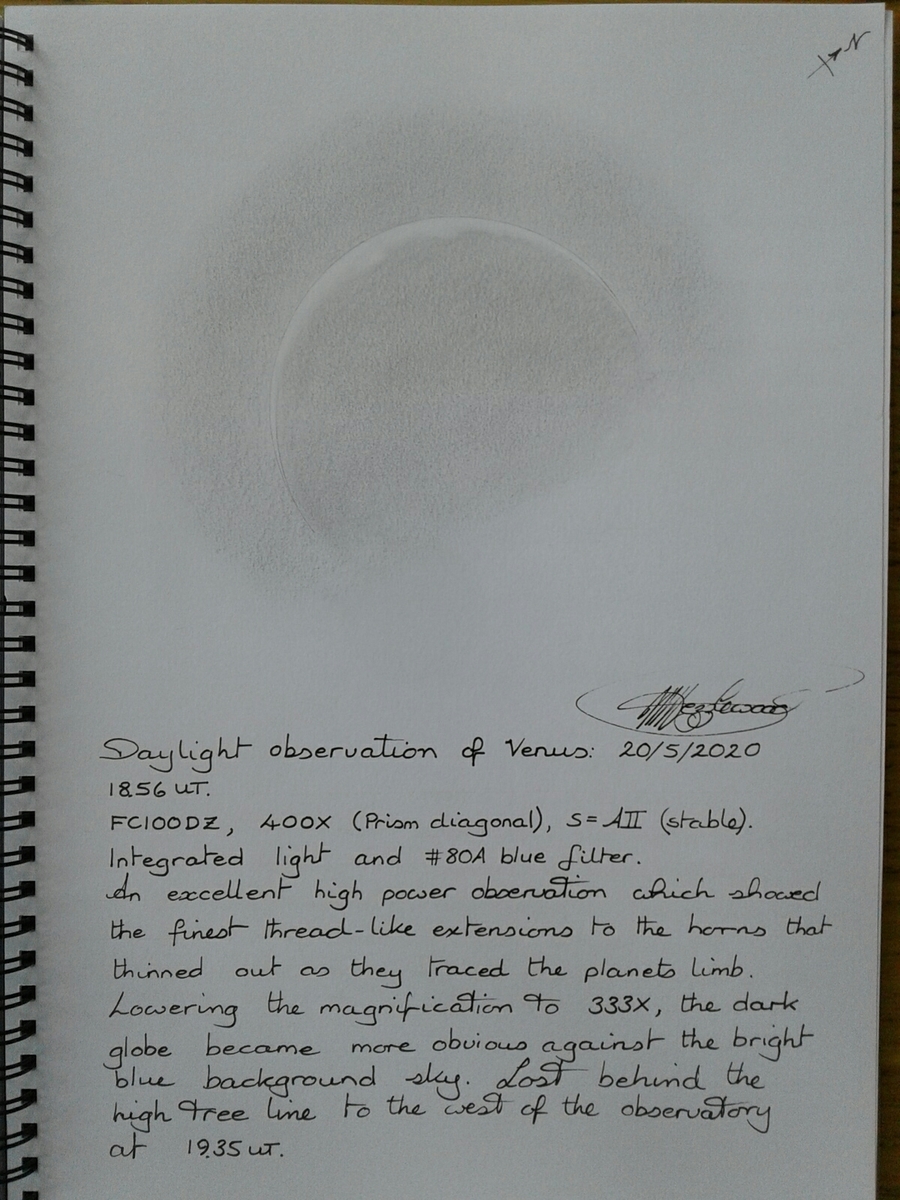 N
Daylight observation of Venus: 20/5/2020
18.56 UT.
FC100DZ, 400X (Prism diagonal), S=AII (stable).
Integrated light and #80A blue filter.
An excellent high power observation which showed
the finest thread-like extensions to the horns that
thinned out as they traced the planets limb.
Lowering the magnification to 333X, the dark
globe became more obvious against the bright
blue background sky. Lost behind the
high tree line to the west of the observatory
at 19.35 UT.